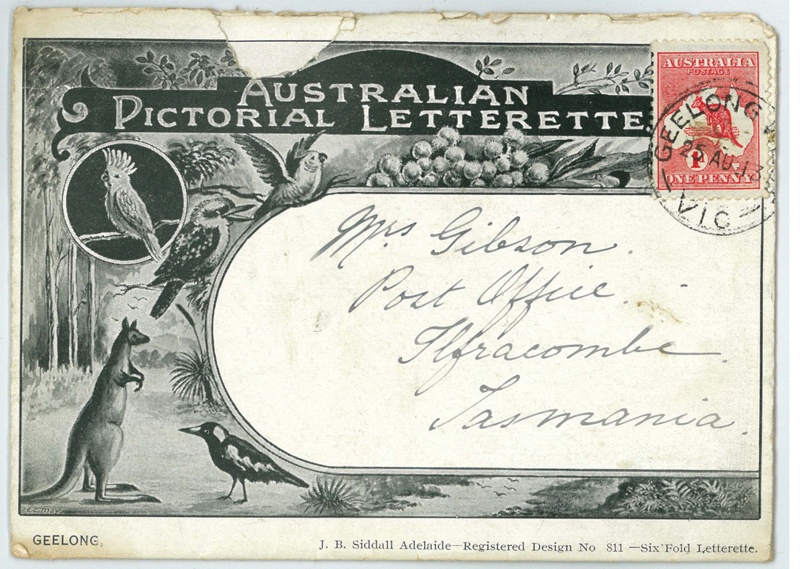 AUSTRALIAN
PICTORIAL LETTERETTE
AUSTRALIA
POSTAGE
1D
ONE PENNY
GEELONG
25 AU 13
VIC
Mrs Gibson.
Post Office.
Ilfracombe.
Tasmania.
GEELONG.
J. B. Siddall Adelaide—Registered Design No 811 —Six Fold Letterette.